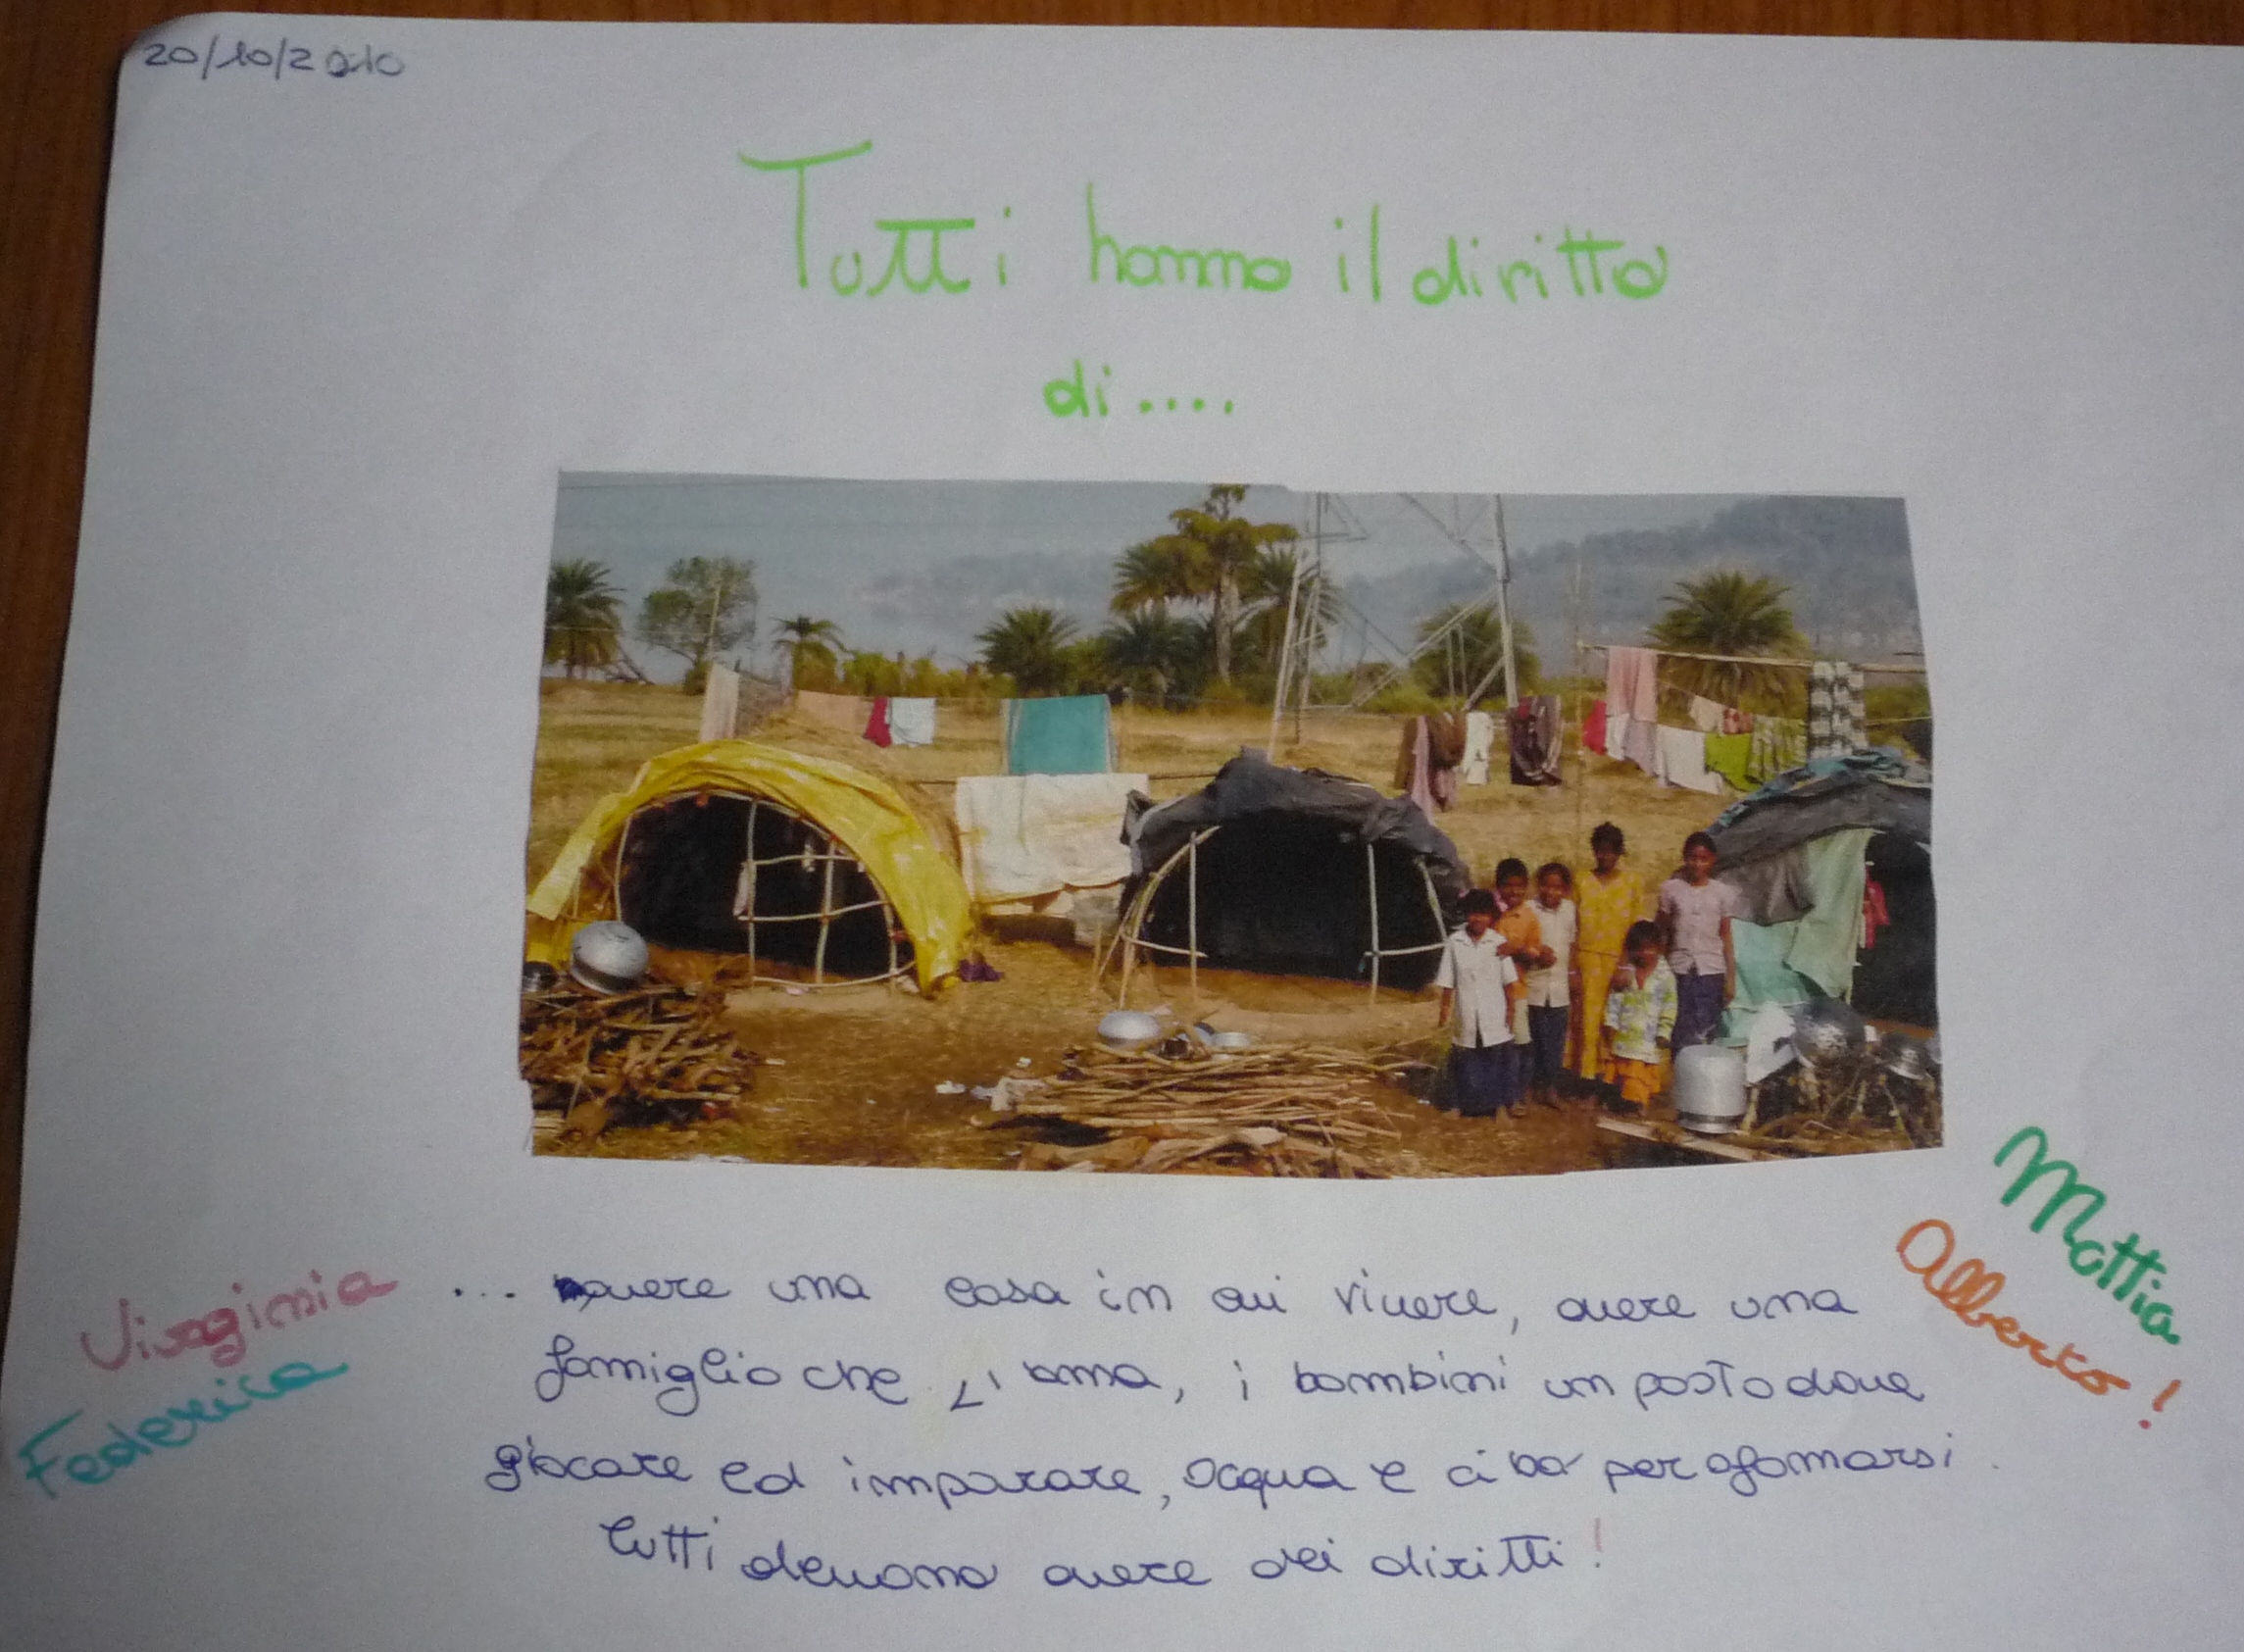 20/10/2010
Tutti hanno il diritto
di....
Mattia
Alberto!
Virginia
Federica
... avere una casa in cui vivere, avere una
famiglia che l'ama, i bambini un posto dove
giocare ed imparare, acqua e cibo per sfamarsi.
Tutti devono avere dei diritti!